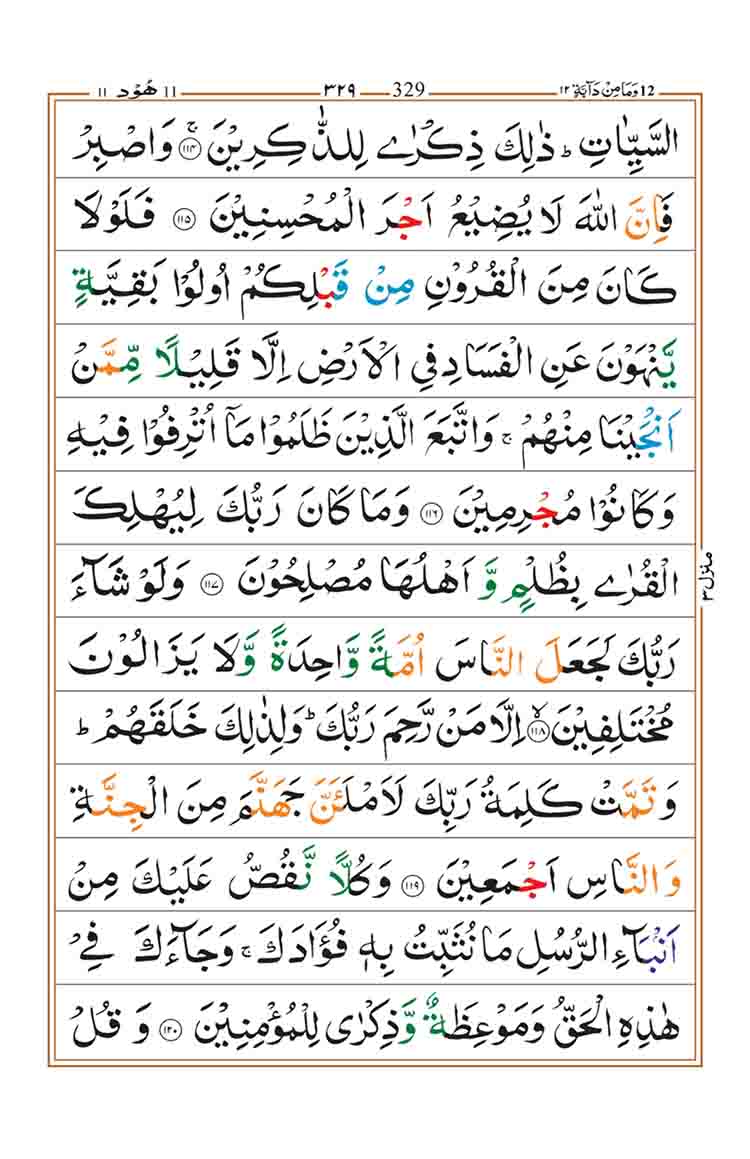 12 وَمَا مِنْ دَآبَّةٍ ١٢ 329 ٣٢٩ 11 هُوْد ١١
السَّيِّاٰتِ ؕ ذٰلِكَ ذِكْرٰى لِلذّٰكِرِيْنَ ۚ‏﴿۱۱۴﴾ وَاصْبِرْ
فَاِنَّ اللّٰهَ لَا يُضِيْعُ اَجْرَ الْمُحْسِنِيْنَ ﴿۱۱۵﴾ فَلَوْلَا
كَانَ مِنَ الْقُرُوْنِ مِنْ قَبْلِكُمْ اُولُوْا بَقِيَّةٍ
يَّنْهَوْنَ عَنِ الْفَسَادِ فِى الْاَرْضِ اِلَّا قَلِيْلًا مِّمَّنْ
اَنْجَيْنَا مِنْهُمْ ۚ وَاتَّبَعَ الَّذِيْنَ ظَلَمُوْا مَاۤ اُتْرِفُوْا فِيْهِ
وَكَانُوْا مُجْرِمِيْنَ ﴿۱۱۶﴾ وَمَا كَانَ رَبُّكَ لِيُهْلِكَ
الْقُرٰى بِظُلْمٍ وَّاَهْلُهَا مُصْلِحُوْنَ ﴿۱۱۷﴾ وَلَوْ شَآءَ
رَبُّكَ لَجَعَلَ النَّاسَ اُمَّةً وَّاحِدَةً وَّلَا يَزَالُوْنَ
مُخْتَلِفِيْنَ ۙ‏﴿۱۱۸﴾ اِلَّا مَنْ رَّحِمَ رَبُّكَ ؕ وَلِذٰلِكَ خَلَقَهُمْ ؕ
وَتَمَّتْ كَلِمَةُ رَبِّكَ لَاَمْلَئَنَّ جَهَنَّمَ مِنَ الْجِنَّةِ
وَالنَّاسِ اَجْمَعِيْنَ ﴿۱۱۹﴾ وَكُلًّا نَّقُصُّ عَلَيْكَ مِنْ
اَنْۢبَآءِ الرُّسُلِ مَا نُثَبِّتُ بِهٖ فُؤَادَكَ ۚ وَجَآءَكَ فِىْ
هٰذِهِ الْحَقُّ وَمَوْعِظَةٌ وَّذِكْرٰى لِلْمُؤْمِنِيْنَ ﴿۱۲۰﴾ وَقُلْ
منزل ۳